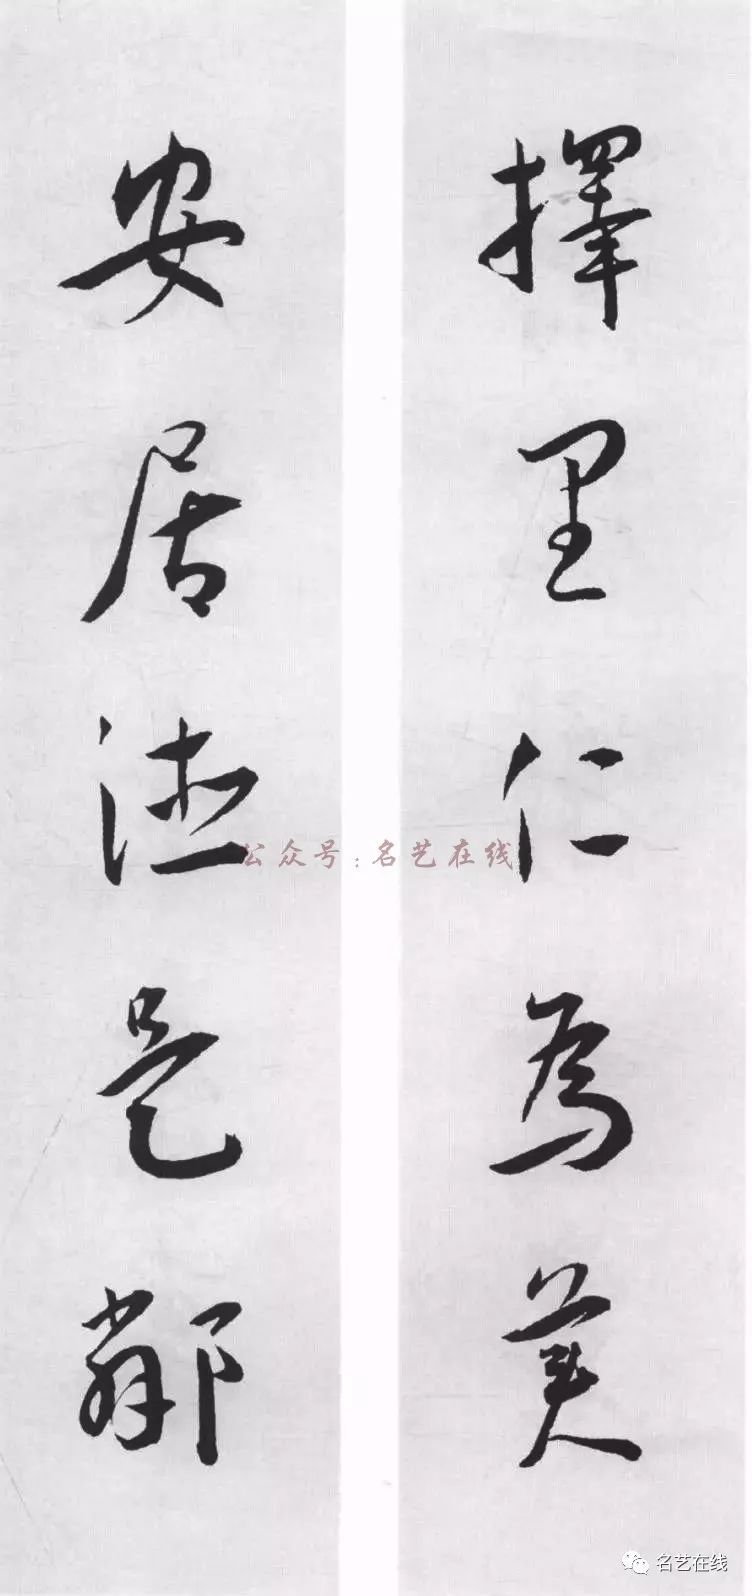 擇里仁為美
安居德是鄰
公众号:名艺在线
名艺在线